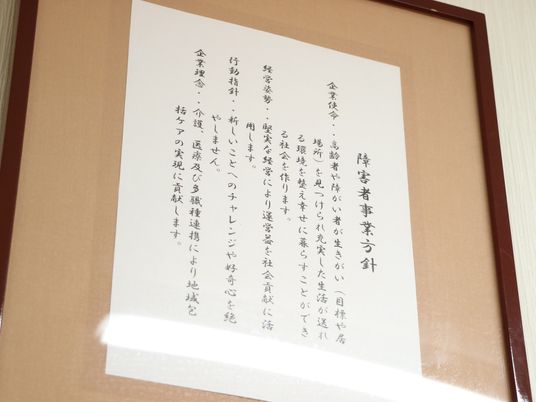 障害者事業方針
企業使命・・高齢者や障がい者が生きがい（目標や居
場所）を見つけられ充実した生活が送れ
る環境を整え幸せに暮らすことができ
る社会を作ります。
経営姿勢・・堅実な経営により運営益を社会貢献に活
用します。
行動指針・・新しいことへのチャレンジや好奇心を絶
やしません。
企業理念・・介護、医療及び多職種連携により地域包
括ケアの実現に貢献します。